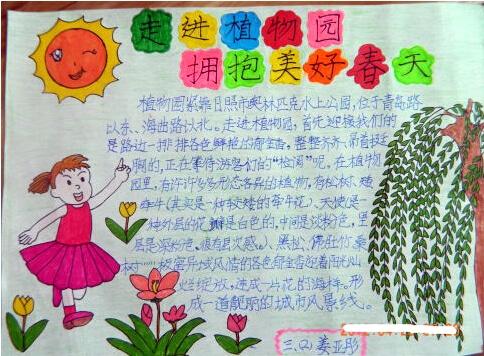 走进植物园
拥抱美好春天
植物园紧靠日照市奥林匹克水上公园,位于青岛路
以东、海曲路以北。走进植物园,首先迎接我们的
是路边一排排各色鲜艳的郁金香,整整齐齐、昂首挺
胸的,正在等待游客们的“检阅”呢。在植物
园里,有许许多多形态各异的植物,有松树、矮
牵牛(其实是一种较矮的牵牛花)、天使(是
一种外层的花瓣是白色的,中间是淡粉色,里
层是深粉色,很有层次感。)、黑松、佛肚竹、桑
树……极富异域风情的各色郁金香迎着阳光灿
烂绽放,连成一片花的海洋。形
成一道靓丽的城市风景线。
三.(2) 姜亚彤